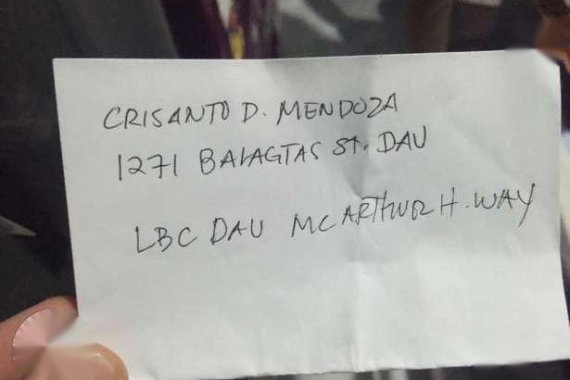 CRISANTO D. MENDOZA
1271 BALAGTAS St. DAU
LBC DAU MC ARTHUR H. WAY